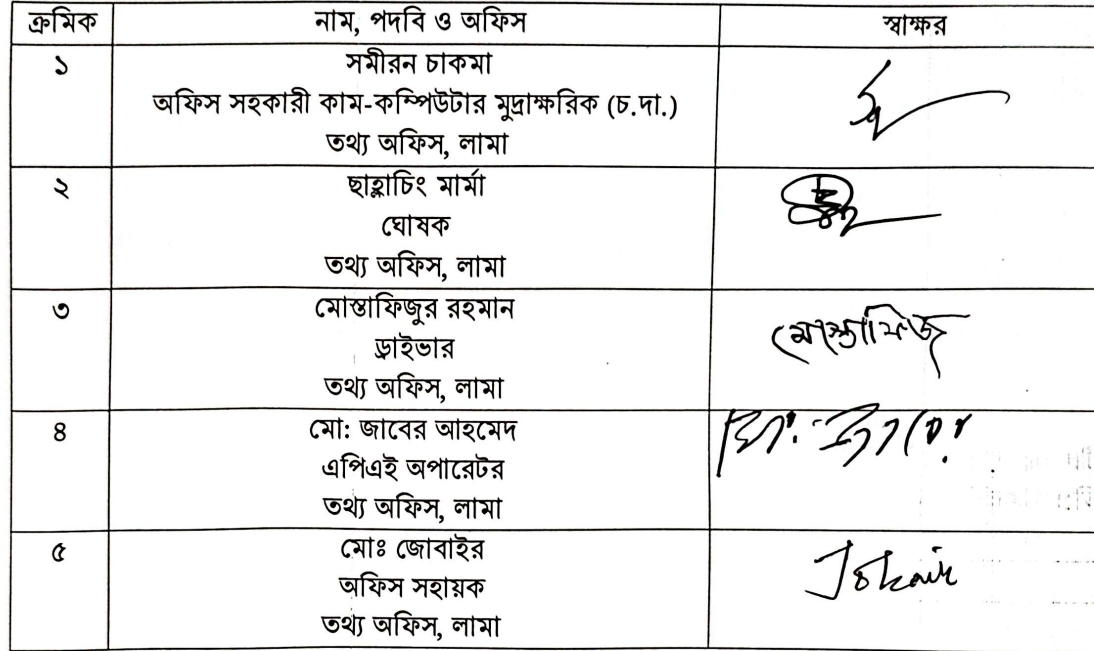 ক্রমিক নাম, পদবি ও অফিস স্বাক্ষর
১ সমীরন চাকমা
অফিস সহকারী কাম-কম্পিউটার মুদ্রাক্ষরিক (চ.দা.)
তথ্য অফিস, লামা
২ ছাহ্লাচিং মার্মা
ঘোষক
তথ্য অফিস, লামা
৩ মোস্তাফিজুর রহমান
ড্রাইভার
তথ্য অফিস, লামা
মোস্তাফিজ
৪ মো: জাবের আহমেদ
এপিএই অপারেটর
তথ্য অফিস, লামা
৫ মোঃ জোবাইর
অফিস সহায়ক
তথ্য অফিস, লামা